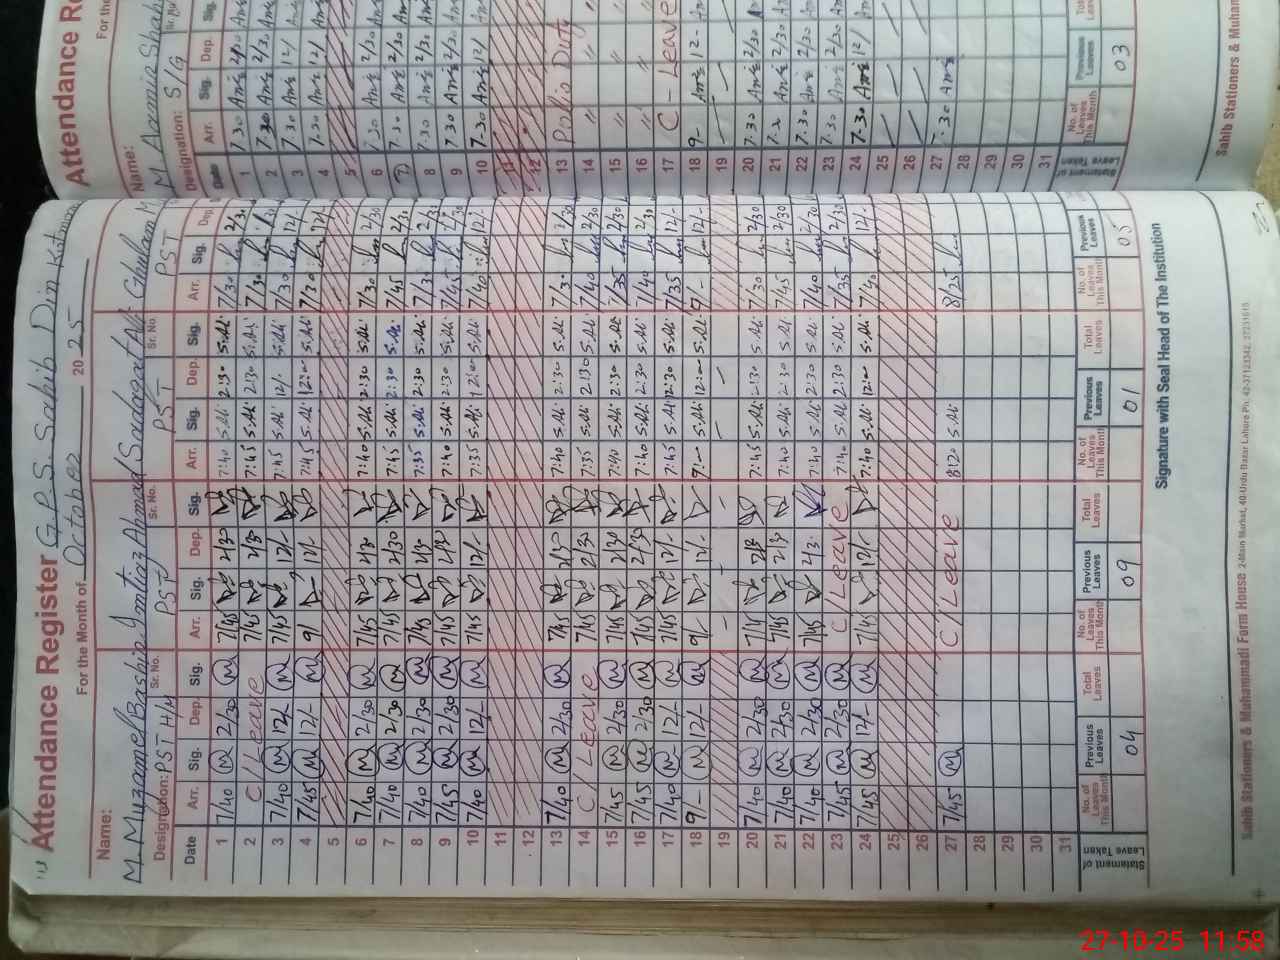 Attendance Register G.P.S. Sahib Din Kotmoman
For the Month of October 2025
Name: M. Muzamel Bashir
Imtiaz Ahmad
Sadaqat Ali
Ghulam M
Designation: PST HM
PST
PST
PST
Sr. No. Sr. No. Sr. No.
Date Arr. Sig. Dep. Sig. Arr. Sig. Dep. Sig. Arr. Sig. Dep. Sig. Arr. Sig. Dep.
1 7/40 2/30 7/45 2/30 7:40 S.Ali 2:30 S.Ali 7/30 2/30
2 C/Leave 7/45 2/30 7:45 S.Ali 2:30 S.Ali 7/30
3 7/40 12/- 7/45 12/- 7:45 S.Ali 12/- S.Ali 7/30 12/-
4 7/45 12/- 9/- 12/- 7:45 S.Ali 12:00 S.Ali 7/30 12/-
5
6 7/40 2/30 7/45 2/30 7:40 S.Ali 2:30 S.Ali 7/30 2/30
7 7/40 2/30 7/45 2/30 7:45 S.Ali 2:30 S.Ali 7/45 2/30
8 7/40 2/30 7/45 2/30 7:35 S.Ali 2:30 S.Ali 7/30 2/30
9 7/45 2/30 7/45 2/30 7:40 S.Ali 2:30 S.Ali 7/45 2/30
10 7/40 12/- 7/45 12/- 7:35 S.Ali 12:00 S.Ali 7/40 12/-
11
12
13 7/40 2/30 7/45 2/30 7:40 S.Ali 2:30 S.Ali 7/30 2/30
14 C/Leave 7/45 2/30 7:35 S.Ali 2:30 S.Ali 7/40 2/30
15 7/45 2/30 7/45 2/30 7:40 S.Ali 2:30 S.Ali 7/35 2/30
16 7/45 2/30 7/45 2/30 7:40 S.Ali 2:30 S.Ali 7/40 2/30
17 7/40 12/- 7/45 12/- 7:45 S.Ali 12:30 S.Ali 7/35 12/-
18 9/- 12/- 9/- 12/- 9:- S.Ali 12:00 S.Ali 9/- 12/-
19
20 7/40 2/30 7/45 2/30 7:45 S.Ali 2:30 S.Ali 7/30 2/30
21 7/40 2/30 7/45 2/30 7:40 S.Ali 2:30 S.Ali 7/45 2/30
22 7/40 2/30 7/45 2/30 7:40 S.Ali 2:30 S.Ali 7/40 2/30
23 7/45 2/30 C/Leave 7:40 S.Ali 2:30 S.Ali 7/35 2/30
24 7/45 12/- 7/45 12/- 7:40 S.Ali 12:00 S.Ali 7/40 12/-
25
26
27 7/45 C/Leave S.Ali 8/25
28
29
30
31
Statement of Leave Taken
No. of Leaves This Month Previous Leaves 04 Total Leaves
No. of Leaves This Month Previous Leaves 09 Total Leaves
No. of Leaves This Month Previous Leaves 01 Total Leaves
No. of Leaves This Month Previous Leaves 05
Signature with Seal Head of The Institution
Sahib Stationers & Muhammadi Form House 2-Main Market, 40-Urdu Bazar Lahore
Attendance Re
For the
Name: M. Aamir
Designation: S/G
Date Arr. Sig. Dep. Sig.
1 7.30 2/30
2 7.30 2/30
3 7.30 12/
4 7.30 12/
5
6 7.30 2/30
7 7.30 2/30
8 7.30 2/30
9 7.30 2/30
10 7.30 12/
11
12
13 Polio Duty
14 " " "
15 " " "
16 " " "
17 C - Leave
18 9- 12-
19
20 7.30 2/30
21 2/30
22 7.30 2/30
23 7.30 2/30
24 7.30 12/
25
26
27 7.30
28
29
30
31
Statement of Leave Taken
No. of Leaves This Month Previous Leaves 03
Sahib Stationers & Muham
27-10-25 11:58